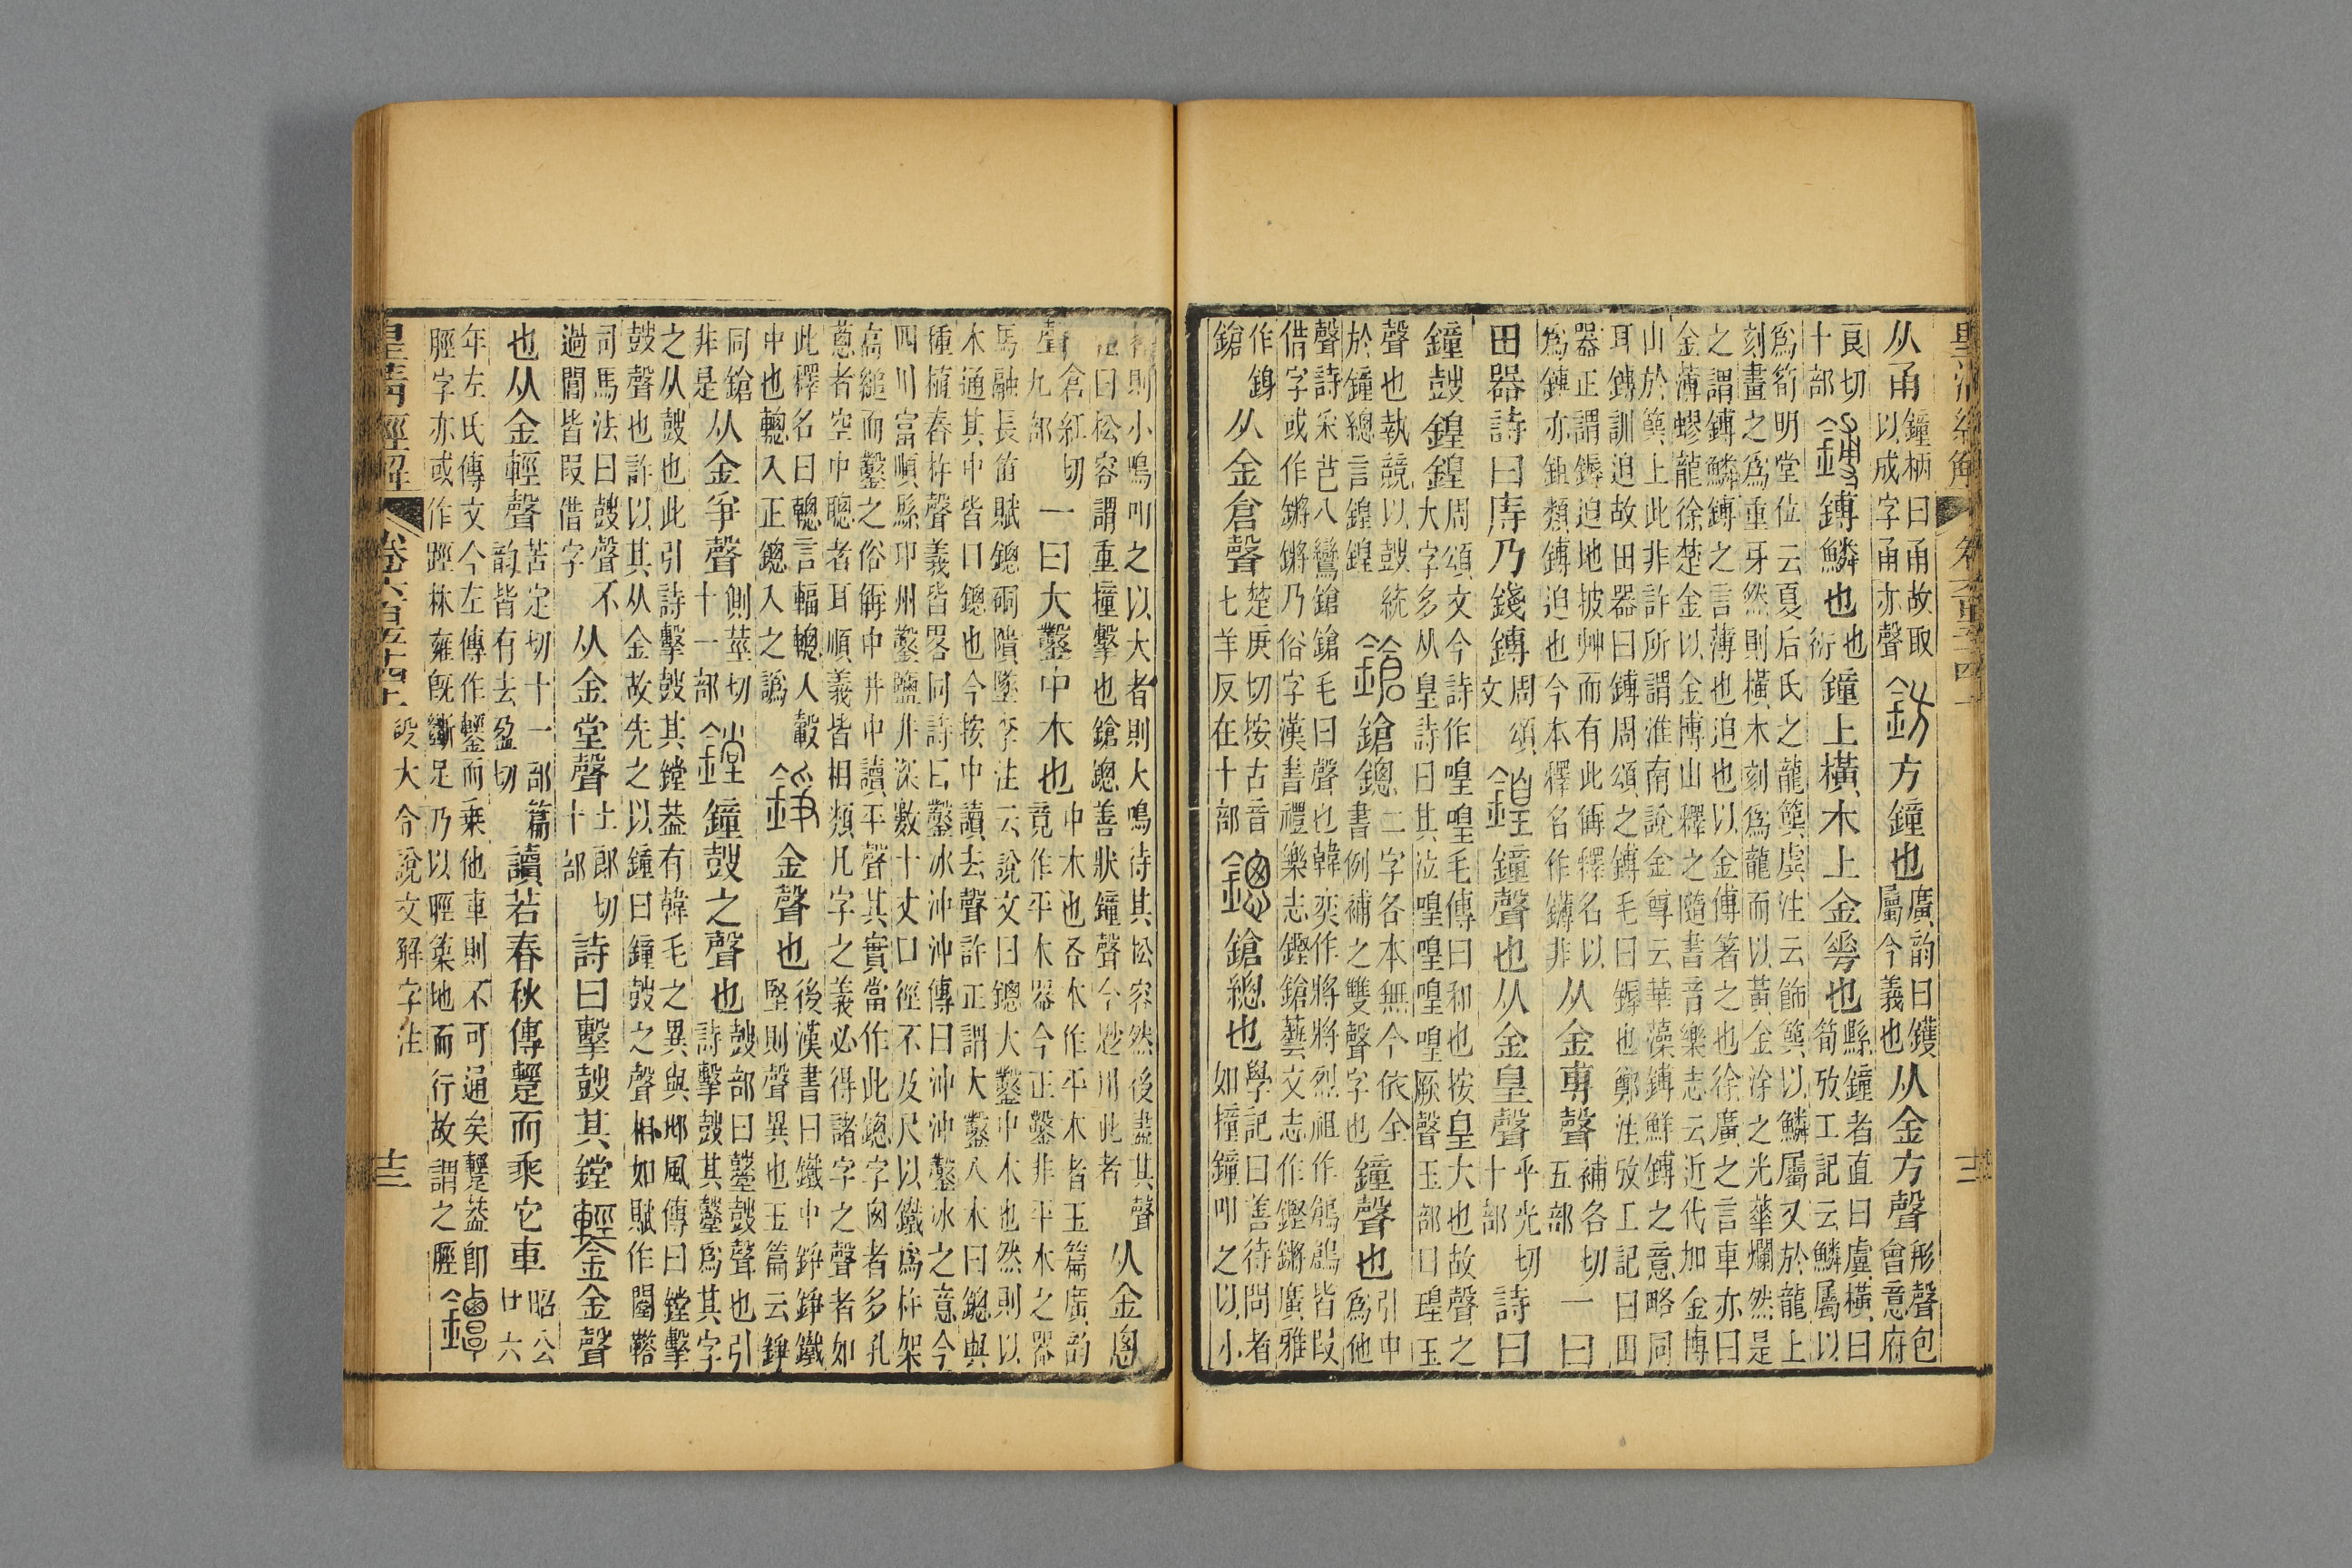 皇清經解 卷六百五十四上 十二
从甬鐘柄曰甬故取以成字甬亦聲鈁方鐘也廣韵曰鑊屬今義也从金方聲形聲包會意府
良切十部鎛鎛鱗也也衍鐘上橫木上金䔢也縣鐘者直曰虡橫曰筍攷工記云鱗屬以
爲筍明堂位云夏后氏之龍簨虡注云飾簨以鱗屬又於龍上
刻畫之爲重牙然則橫木刻爲龍而以黃金涂之光華爛然是
之謂鎛鱗鎛之言薄也迫也以金傅箸之也徐廣之言車亦曰
金薄蟉龍徐楚金以金博山釋之隨書音樂志云近代加金博
山於簨上此非許所謂淮南說金尊云華藻鎛鮮鎛之意略同
耳鎛訓迫故田器曰鎛周頌之鎛毛曰鎒也鄭注攷工記曰田
器正謂鎒迫地披艸而有此偁釋名以
爲鎛亦鉏類鎛迫也今本釋名作鏄非从金尃聲補各切五部一曰
田器詩曰庤乃錢鎛周頌文鍠鐘聲也从金皇聲乎光切十部詩曰
鐘鼓鍠鍠周頌文今詩作喤喤毛傳曰和也按皇大也故聲之
大字多从皇詩曰其泣喤喤喤喤厥聲玉部曰瑝玉
聲也執競以鼓統於鐘總言鍠鍠鎗鎗鏓二字各本無今依全書例補之雙聲字也鐘聲也引申爲他
聲詩采芑八鸞鎗鎗毛曰聲也韓奕作將將烈祖作鶬鶬皆叚
借字或作鏘鏘乃俗字漢書禮樂志鏗鎗藝文志作鏗鏘廣雅
作鎗从金倉聲楚庚切按古音七羊反在十部鏓鎗鏓也學記曰善待問者如撞鐘叩之以小
者則小鳴叩之以大者則大鳴待其松容然後盡其聲
注曰松容謂重撞擊也鎗鏓善狀鐘聲今尠用此者从金悤
聲倉紅切九部一曰大鑿中木也中木也各本作平木者玉篇廣韵竟作平木器今正鑿非平木之器
馬融長笛賦鏓硐隤墜李注云說文曰鏓大鑿中木也然則以
木通其中皆曰鏓也今按中讀去聲許正謂大鑿入木曰鏓與
種植舂杵聲義皆畧同詩曰鑿冰沖沖傳曰沖沖鑿冰之意今
四川富順縣邛州鑿鹽井深數十丈口徑不及尺以鐵爲杵架
高縋而鑿之俗偁中井中讀平聲其實當作此鏓字囪者多孔
蔥者空中聰者耳順義皆相類凡字之義必得諸字之聲者如
此釋名曰言輻入轂中也入正鏓入之譌錚金聲也後漢書曰鐵中錚錚鐵堅則聲異也玉篇云錚
同鎗非是从金爭聲側莖切十一部鏜鐘鼓之聲也鼓部曰鼞鼓聲也引詩擊鼓其鼞爲其字
之从鼓也此引詩擊鼓其鏜葢有韓毛之異與邶風傳曰鏜擊
鼓聲也許以其从金故先之以鐘曰鐘鼓之聲相如賦作闛鞈
司馬法曰鼓聲不過閶皆叚借字从金堂聲土郎切十部詩曰擊鼓其鏜鑋金聲
也从金輕聲苦定切十一部篇韵皆有去盈切讀若春秋傳躗而乘它車昭公廿六
年左氏傳文今左傳作鑋而乘他車則不可通矣躗葢卽
脛字亦或作踁林雍旣斷足乃以脛築地而行故謂之脛鐔
皇清經解 卷六百五十四上 段大令說文解字注 十三